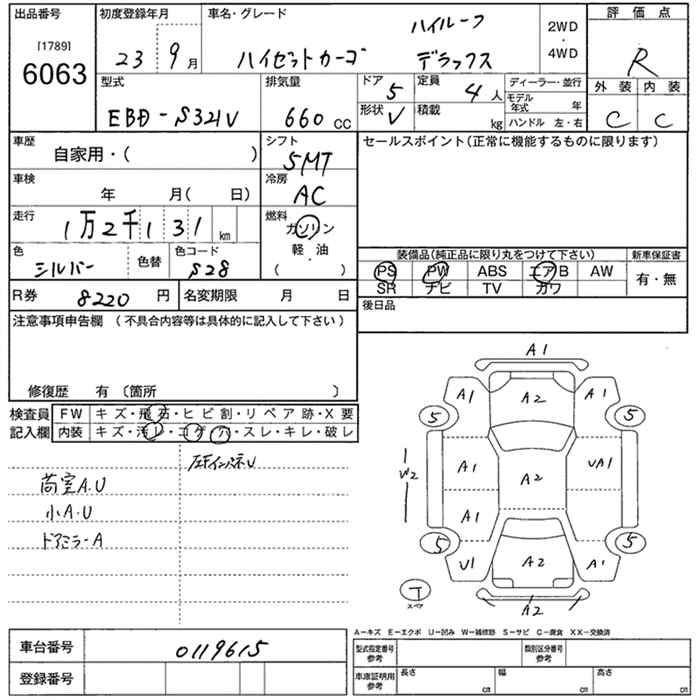 出品番号
[1789]
6063
初度登録年月
23 9 月
車名・グレード
ハイルーフ
ハイゼットカーゴ デラックス
2WD
・
4WD
評価点
R
外装 内装
C C
型式
EBD-S321V
排気量
660 cc
ドア 5
形状 V
定員 4 人
積載 kg
ディーラー・並行
モデル年式 年
ハンドル 左・右
車歴
自家用・( )
シフト
5MT
車検
年 月( 日)
冷房
AC
走行
1万2千131 km
燃料
ガソリン
・
軽・油
・
( )
色
シルバー
色替
色コード
S28
R券 8220 円
名変期限 月 日
セールスポイント(正常に機能するものに限ります)
装備品(純正品に限り丸をつけて下さい)
PS PW ABS エアB AW
SR ナビ TV カワ
新車保証書
有・無
後日品
注意事項申告欄 (不具合内容等は具体的に記入して下さい)
修復歴 有 〔箇所 〕
検査員
記入欄
FW キズ・飛石・ヒビ割・リペア跡・X要
内装 キズ・汚レ・コゲ・穴・スレ・キレ・破レ
荷室A.U
小A.U
ドアミラーA
A1
A1 A2 A1
5 5
A1 A2 UA1
W2
A1
5 5
U1 A2 A1
T
スペア
A2
A－キズ E－エクボ U－凹み W－補修跡 S－サビ C－腐食 XX－交換済
車台番号 0119615
登録番号
型式指定番号
参考
類別区分番号
参考
車庫証明用
参考
長さ cm
幅 cm
高さ cm